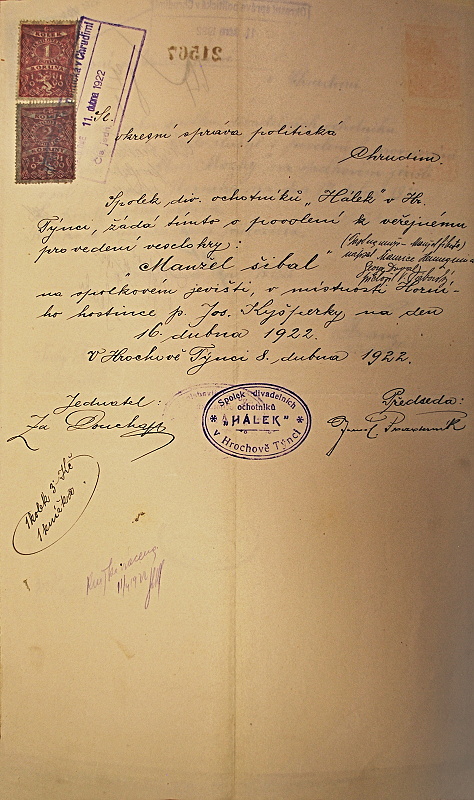 KOLEK
1
KORUNA
KOLEK
2
KORUNY
v Chrudimi
11. dubna 1922
21567
Sl.
okresní správa politická
Chrudim.
Spolek div. ochotníků „Hálek" v Hr.
Týnci, žádá tímto o povolení k veřejnému
provedení veselohry:
„Manžel šibal"
napsal Maurice Hannequin a
přeložil
na spolkovém jevišti, v místnosti Horní-
ho hostince p. Jos. Kyšperky na den
16. dubna 1922.
V Hrochově Týnci 8. dubna 1922.
Jednatel:
Předseda:
Spolek divadelních
ochotníků
"HÁLEK"
v Hrochově Týnci
kolek 3 Kč